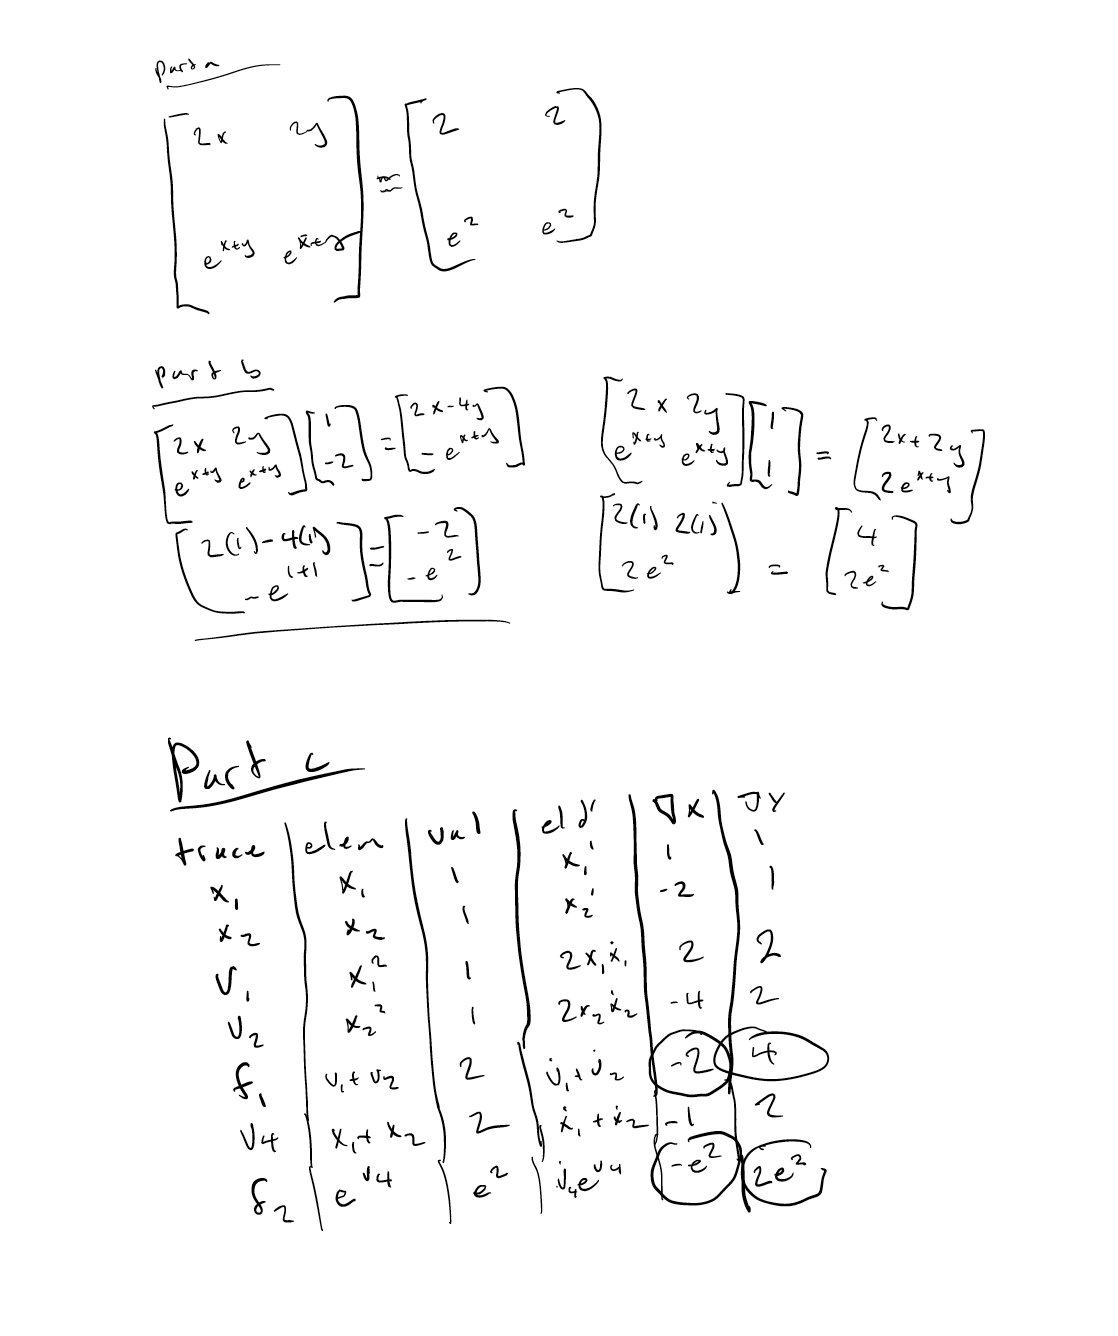 part a
[2x 2y; e^{x+y} e^{x+y}] = [2 2; e^2 e^2]
part b
[2x 2y; e^{x+y} e^{x+y}] [1; -2] = [2x-4y; -e^{x+y}]
[2(1)-4(1); -e^{1+1}] = [-2; -e^2]
[2x 2y; e^{x+y} e^{x+y}] [1; 1] = [2x+2y; 2e^{x+y}]
[2(1) 2(1); 2e^2] = [4; 2e^2]
Part c
trace | elem | val | el d' | ∇X | ∇Y
x_1 | x_1 | 1 | x_1' | 1 | 1
x_2 | x_2 | 1 | x_2' | -2 | 1
v_1 | x_1^2 | 1 | 2x_1ẋ_1 | 2 | 2
v_2 | x_2^2 | 1 | 2x_2ẋ_2 | -4 | 2
f_1 | v_1+v_2 | 2 | v̇_1+v̇_2 | -2 | 4
v4 | x_1+x_2 | 2 | ẋ_1+ẋ_2 | -1 | 2
f_2 | e^{v4} | e^2 | v̇_4e^{v4} | -e^2 | 2e^2